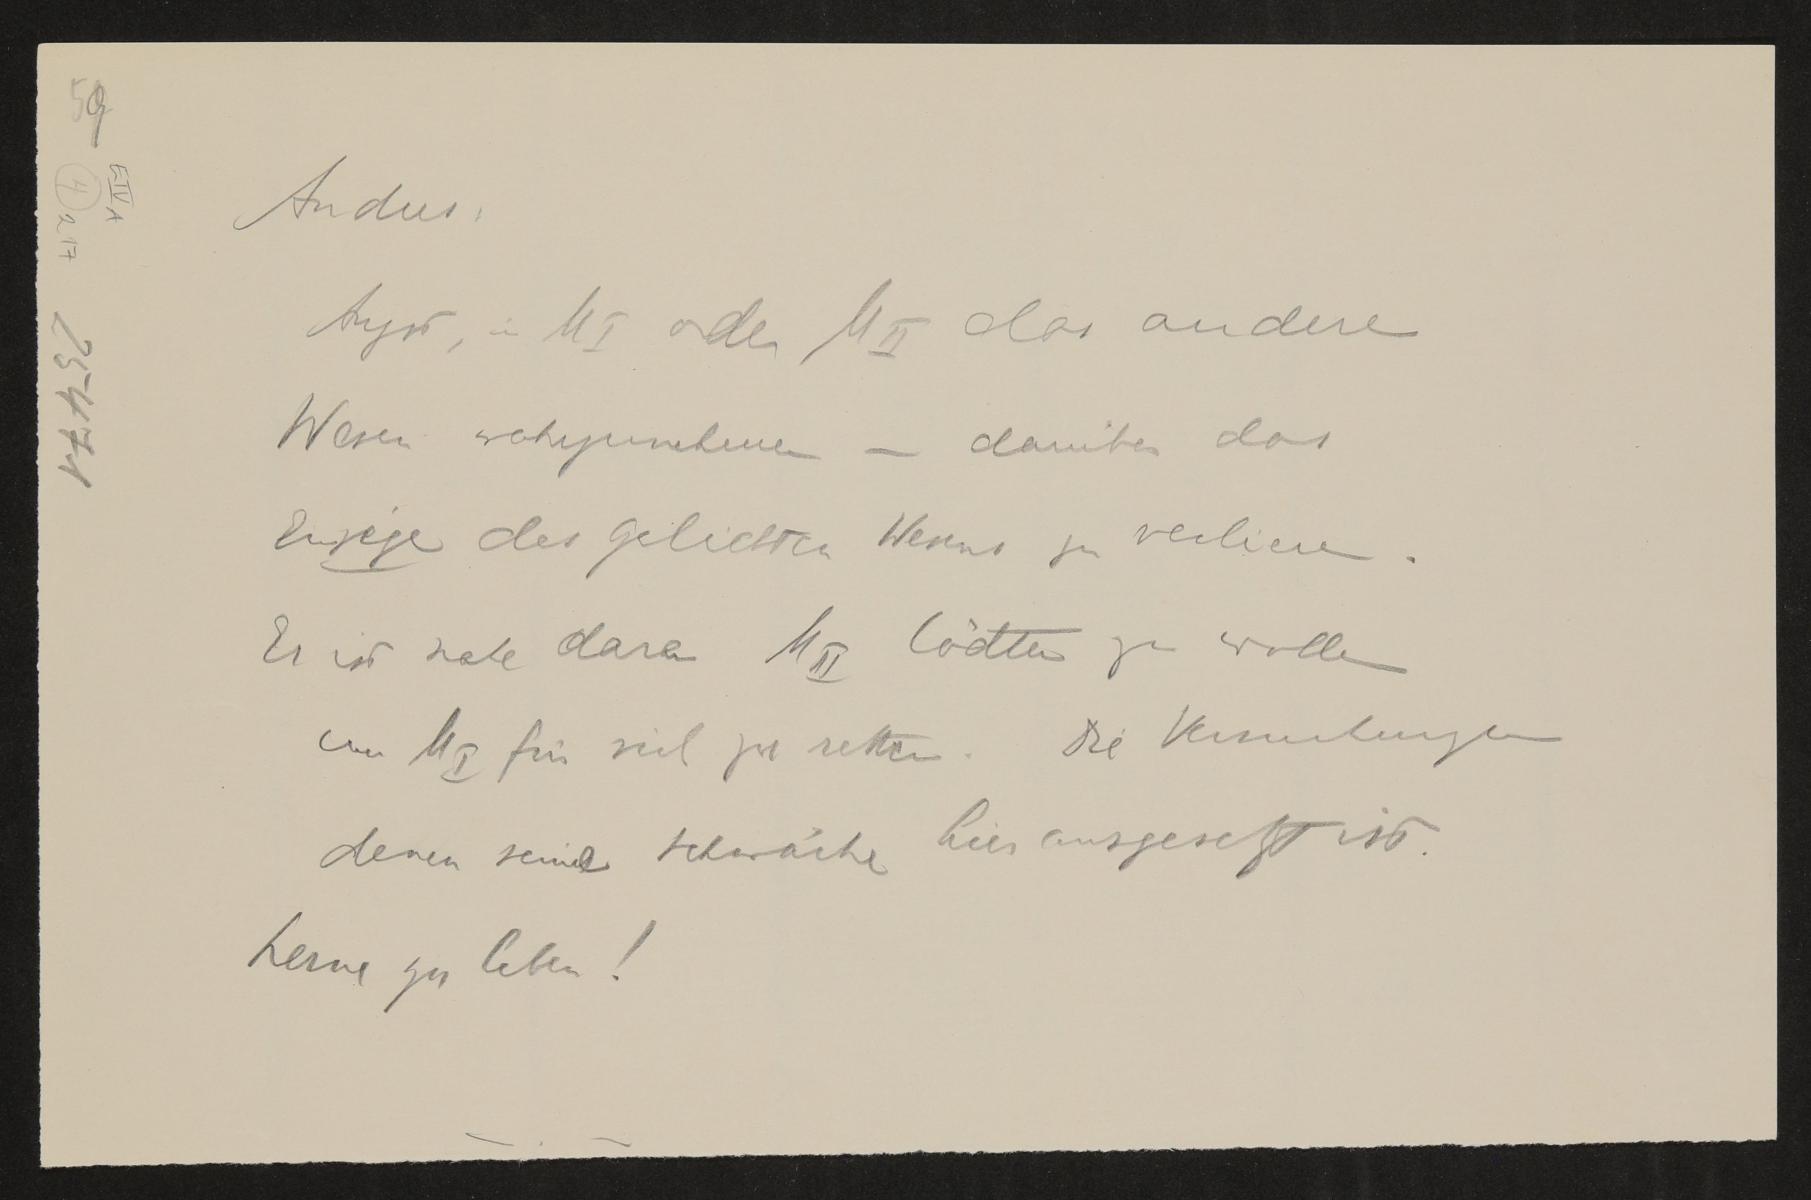 59
E IV A
4
217
25471
Andres.
Angst, in M I oder M II das andere
Wesen wahrzunehmen — darüber das
Einzige des geliebten Wesens zu verlieren.
Er ist nahe daran M II tödten zu wollen
um M I für sich zu retten. Die Versuchungen
denen seine Schwäche hier ausgesetzt ist.
Lerne zu leben!